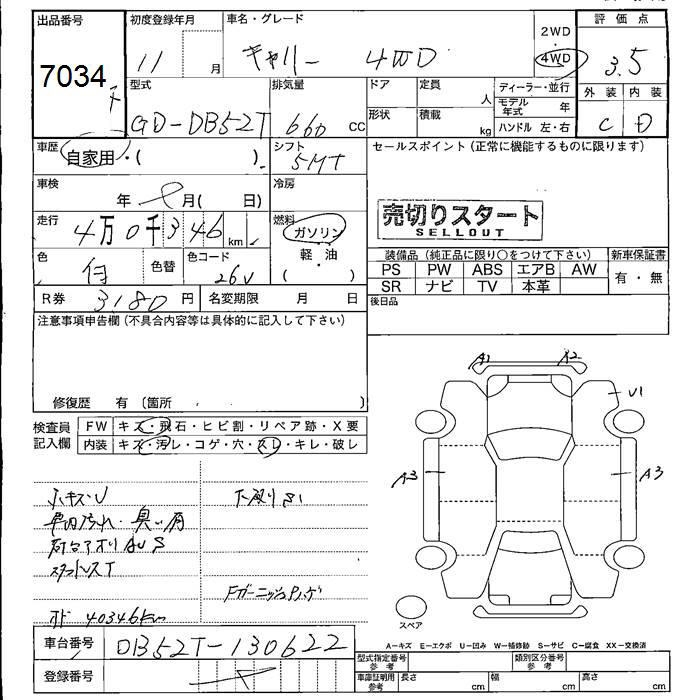 出品番号 初度登録年月 車名・グレード 2WD 評価点
7034 11 月 キャリー 4WD 4WD 3.5
型式 排気量 ドア 定員 人 ディーラー・並行 外装 内装
GD-DB52T 660 cc 形状 積載 kg モデル年式 年 C D
ハンドル 左・右
車歴 自家用・( ) シフト 5MT セールスポイント (正常に機能するものに限ります)
車検 年 月( 日) 冷房
売切りスタート
SELLOUT
走行 4万0千346 km 燃料 ガソリン 軽・油
装備品 (純正品に限り○をつけて下さい) 新車保証書
色 白 色替 色コード 26U PS PW ABS エアB AW 有・無
SR ナビ TV 本革
R券 3180円 名変期限 月 日 後日品
注意事項申告欄 (不具合内容等は具体的に記入して下さい)
修復歴 有 (箇所 )
A1 A2
U1
A3 A3
検査員記入欄 FW キズ・飛石・ヒビ割・リペア跡・X要
内装 キズ・汚レ・コゲ・穴・スレ・キレ・破レ
小キズ・U 下廻りS
車内汚れ・臭い有
荷台アオリAUS
スタッドレスT
Fガーニッシュ
オド 40346km
スペア
A-キズ E-エクボ U-凹み W-補修跡 S-サビ C-腐食 XX-交換済
車台番号 DB52T-130622
型式指定番号 参考 類別区分番号 参考
登録番号
車庫証明用 参考 長さ cm 幅 cm 高さ cm